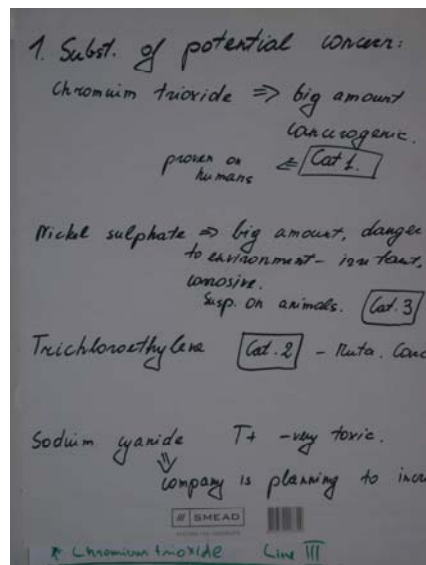 1. Subst. of potential concern:
Chromium trioxide ⇒ big amount
cancerogenic.
proven on ⇐ Cat 1.
humans
Nickel sulphate ⇒ big amount, danger
to environment - irritant,
corrosive.
Susp. on animals. Cat. 3
Trichloroethylene Cat. 2 - Muta. Canc
Sodium cyanide T+ - very toxic.
⇓
company is planning to incr
SMEAD
* Chromium trioxide Line III